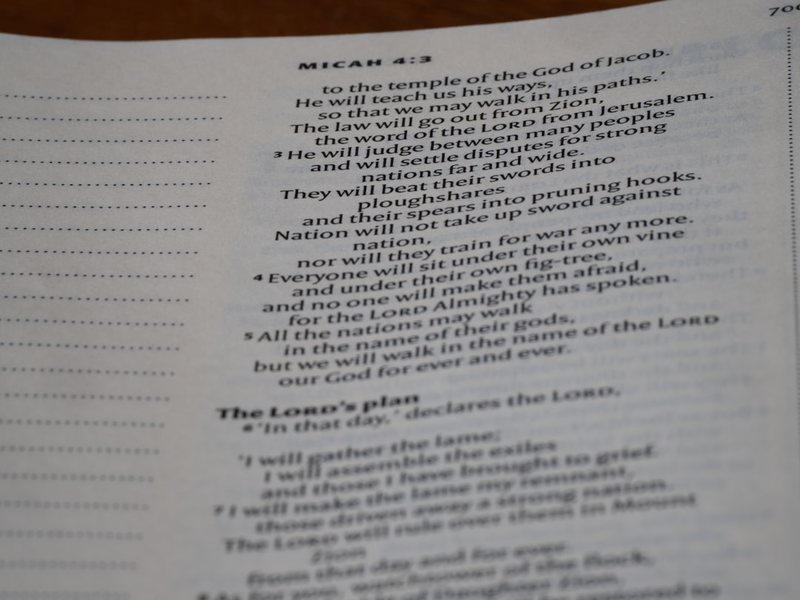 MICAH 4:3
700
to the temple of the God of Jacob.
He will teach us his ways,
so that we may walk in his paths.’
The law will go out from Zion,
the word of the LORD from Jerusalem.
3 He will judge between many peoples
and will settle disputes for strong
nations far and wide.
They will beat their swords into
ploughshares
and their spears into pruning hooks.
Nation will not take up sword against
nation,
nor will they train for war any more.
4 Everyone will sit under their own vine
and under their own fig-tree,
and no one will make them afraid,
for the LORD Almighty has spoken.
5 All the nations may walk
in the name of their gods,
but we will walk in the name of the LORD
our God for ever and ever.
The LORD’s plan
6 ‘In that day,’ declares the LORD,
‘I will gather the lame;
I will assemble the exiles
and those I have brought to grief.
7 I will make the lame my remnant,
those driven away a strong nation.
The LORD will rule over them in Mount
Zion
from that day and for ever.
As for you, watchtower of the flock,
of Daughter Zion,